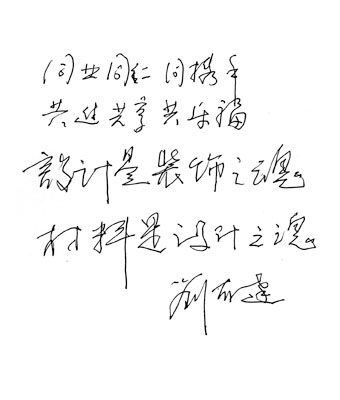 同业同仁同携手
共进共享共乐福
設计是装饰之魂。
材料是设计之魂。